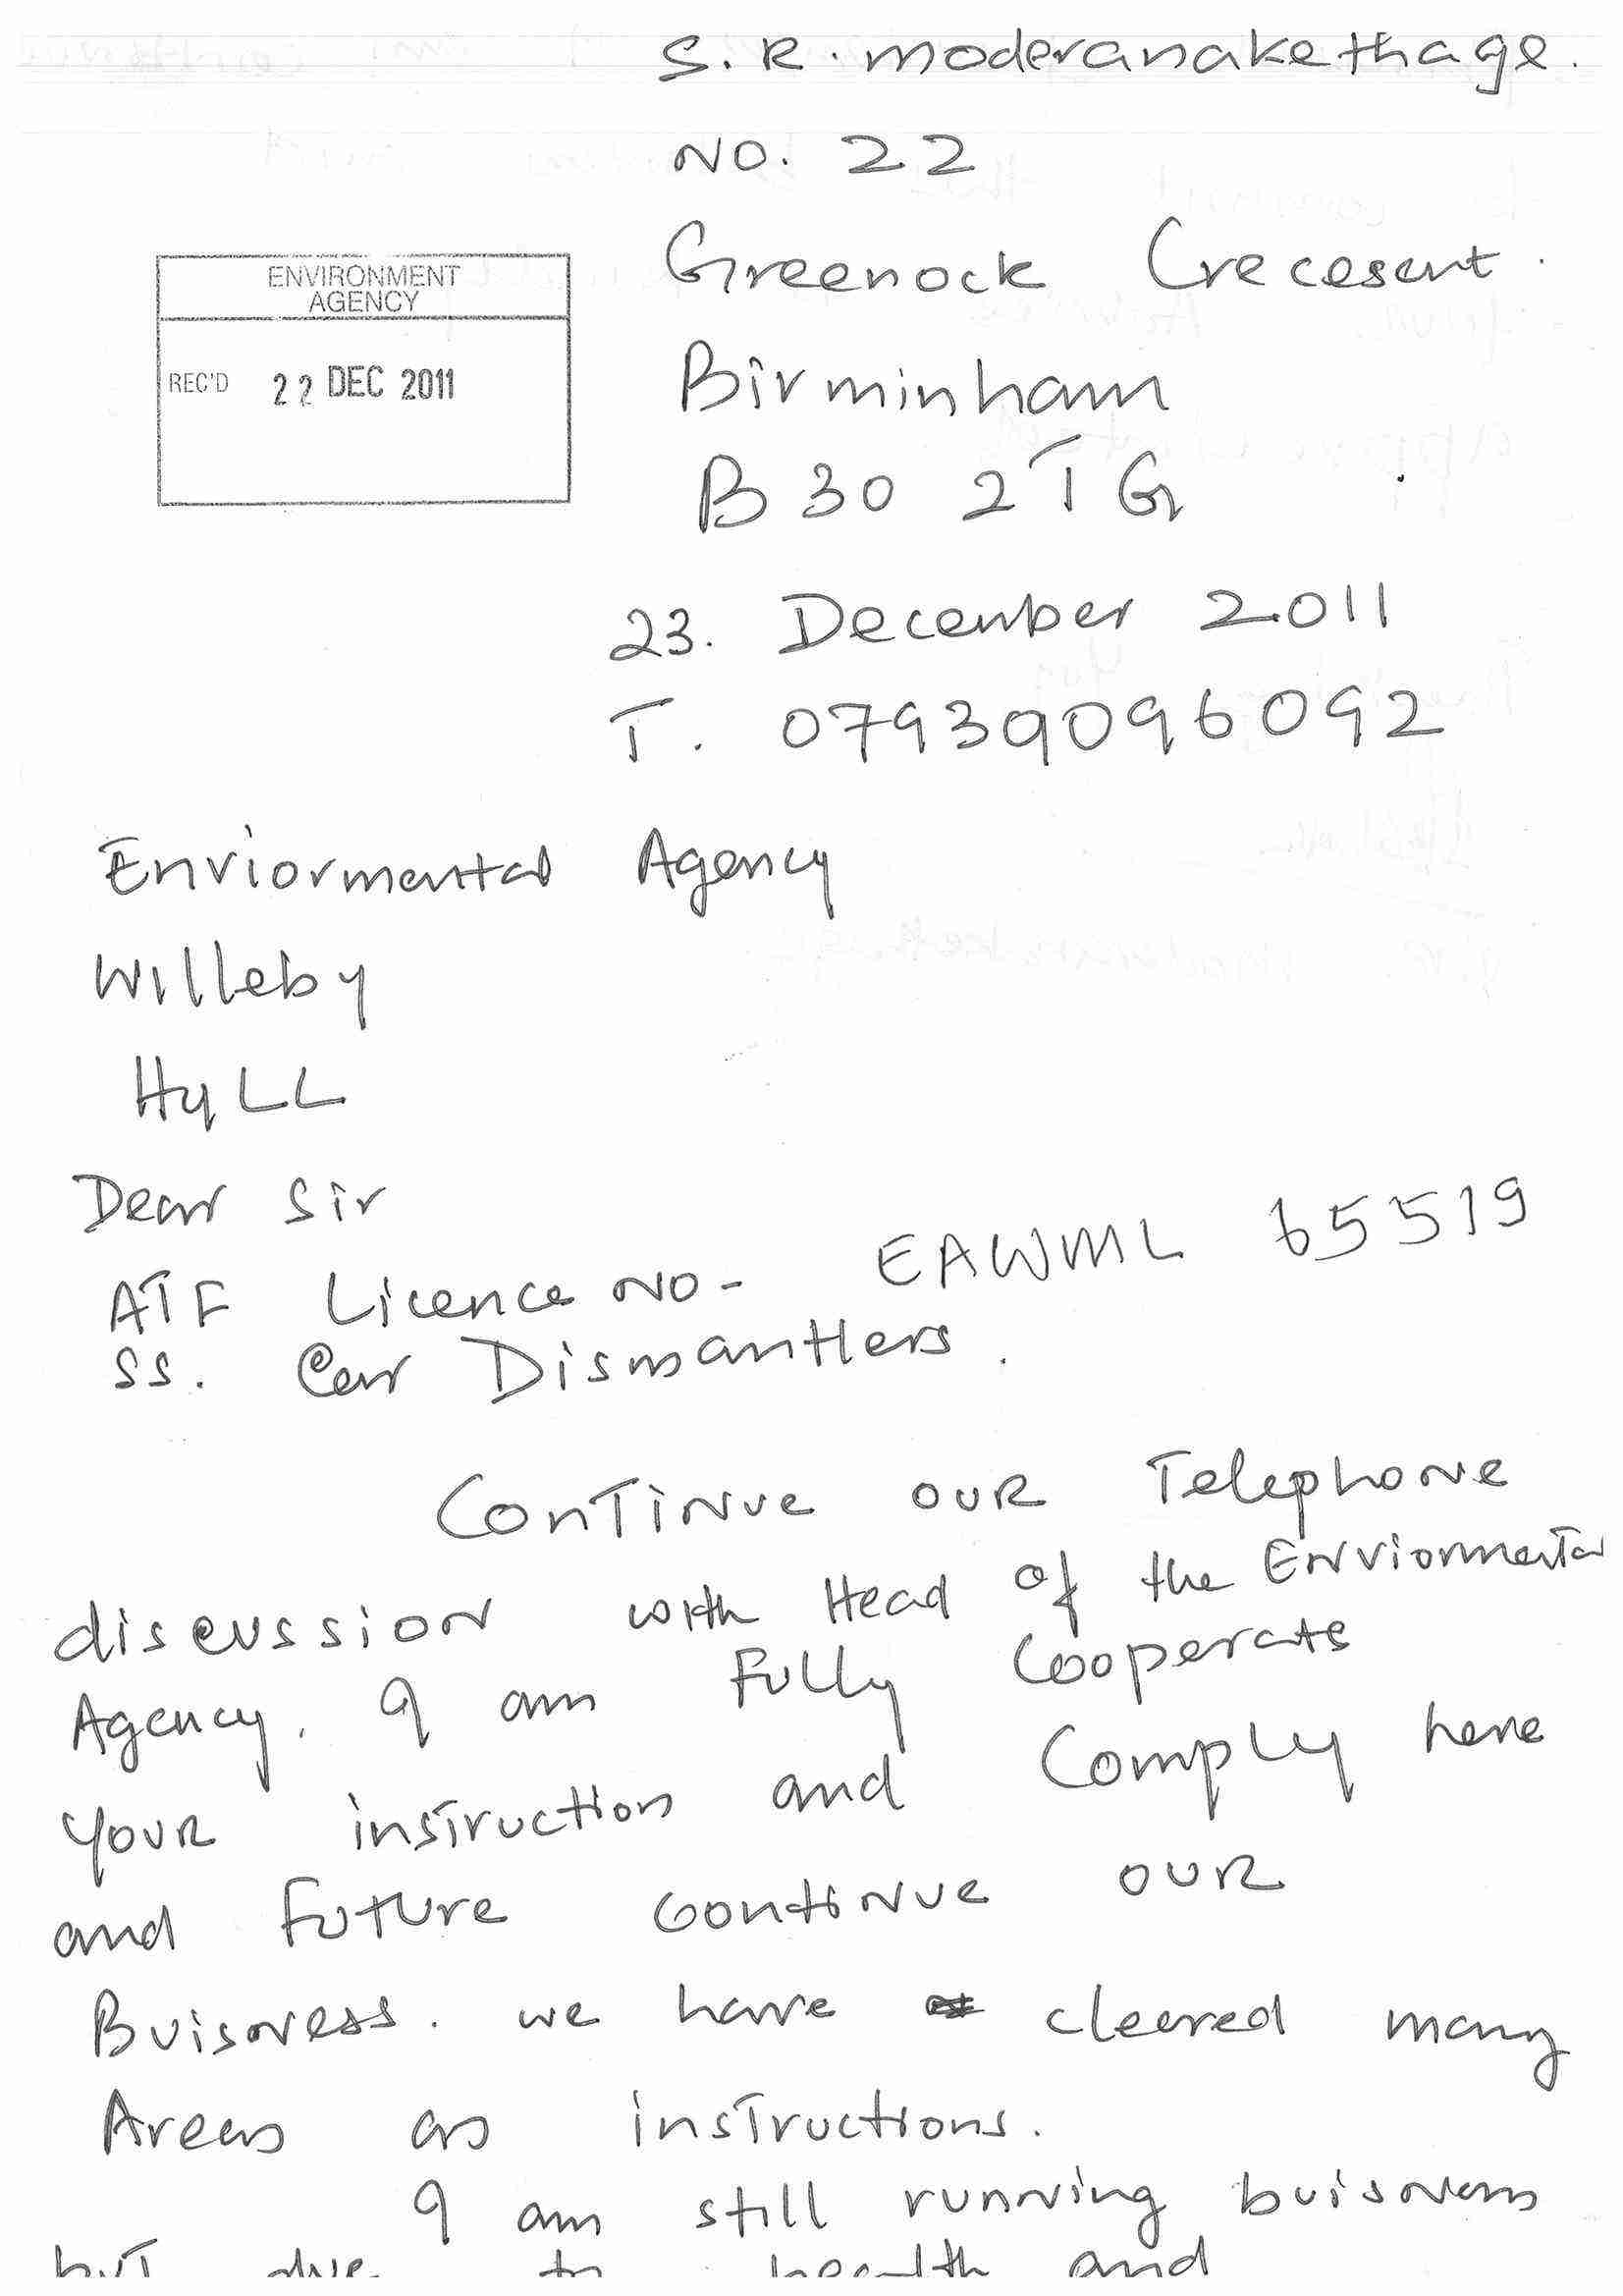 S. R. moderanakethage.
NO. 22
Greenock Crecesent.
Birminham
B 30 2TG
ENVIRONMENT
AGENCY
REC'D 22 DEC 2011
23. December 2011
T. 07939096092
Enviormental Agency
Willeby
HyLL
Dear Sir
ATF Licence NO- EAWML 65519
SS. Car Dismantlers.
Continue our Telephone
discussion with Head of the Enviormental
Agency. I am Fully Cooperate
your instruction and Comply here
and Future continue our
Buisness. we have cleared many
Areas as instructions.
I am still running buisness
but due to health and